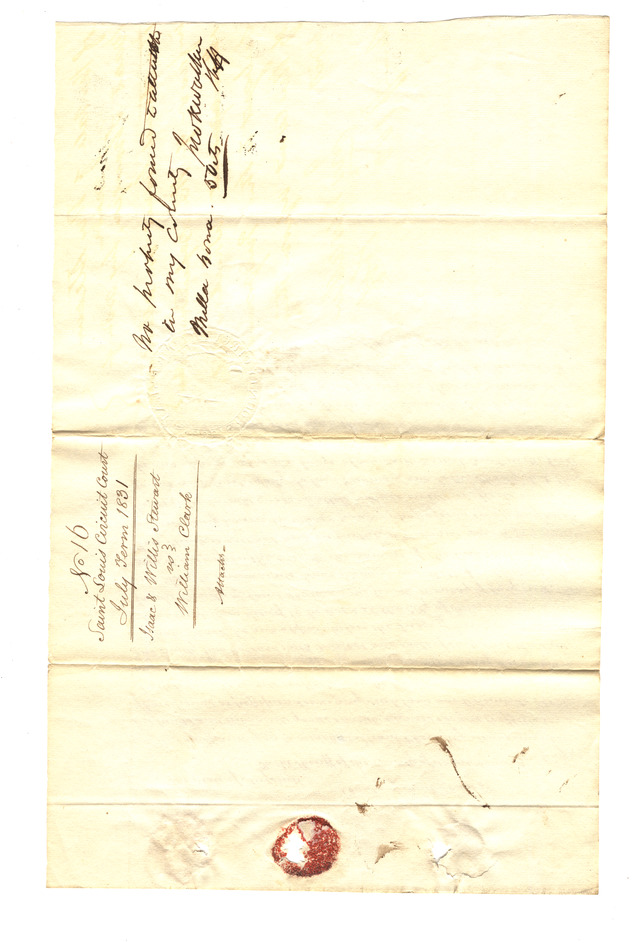 No property found to attach
in my County Jno K Walker
Shff
No 16
Saint Louis Circuit Court
July Term 1831
Isaac & Willis Stewart
vs
William Clark
Attacht